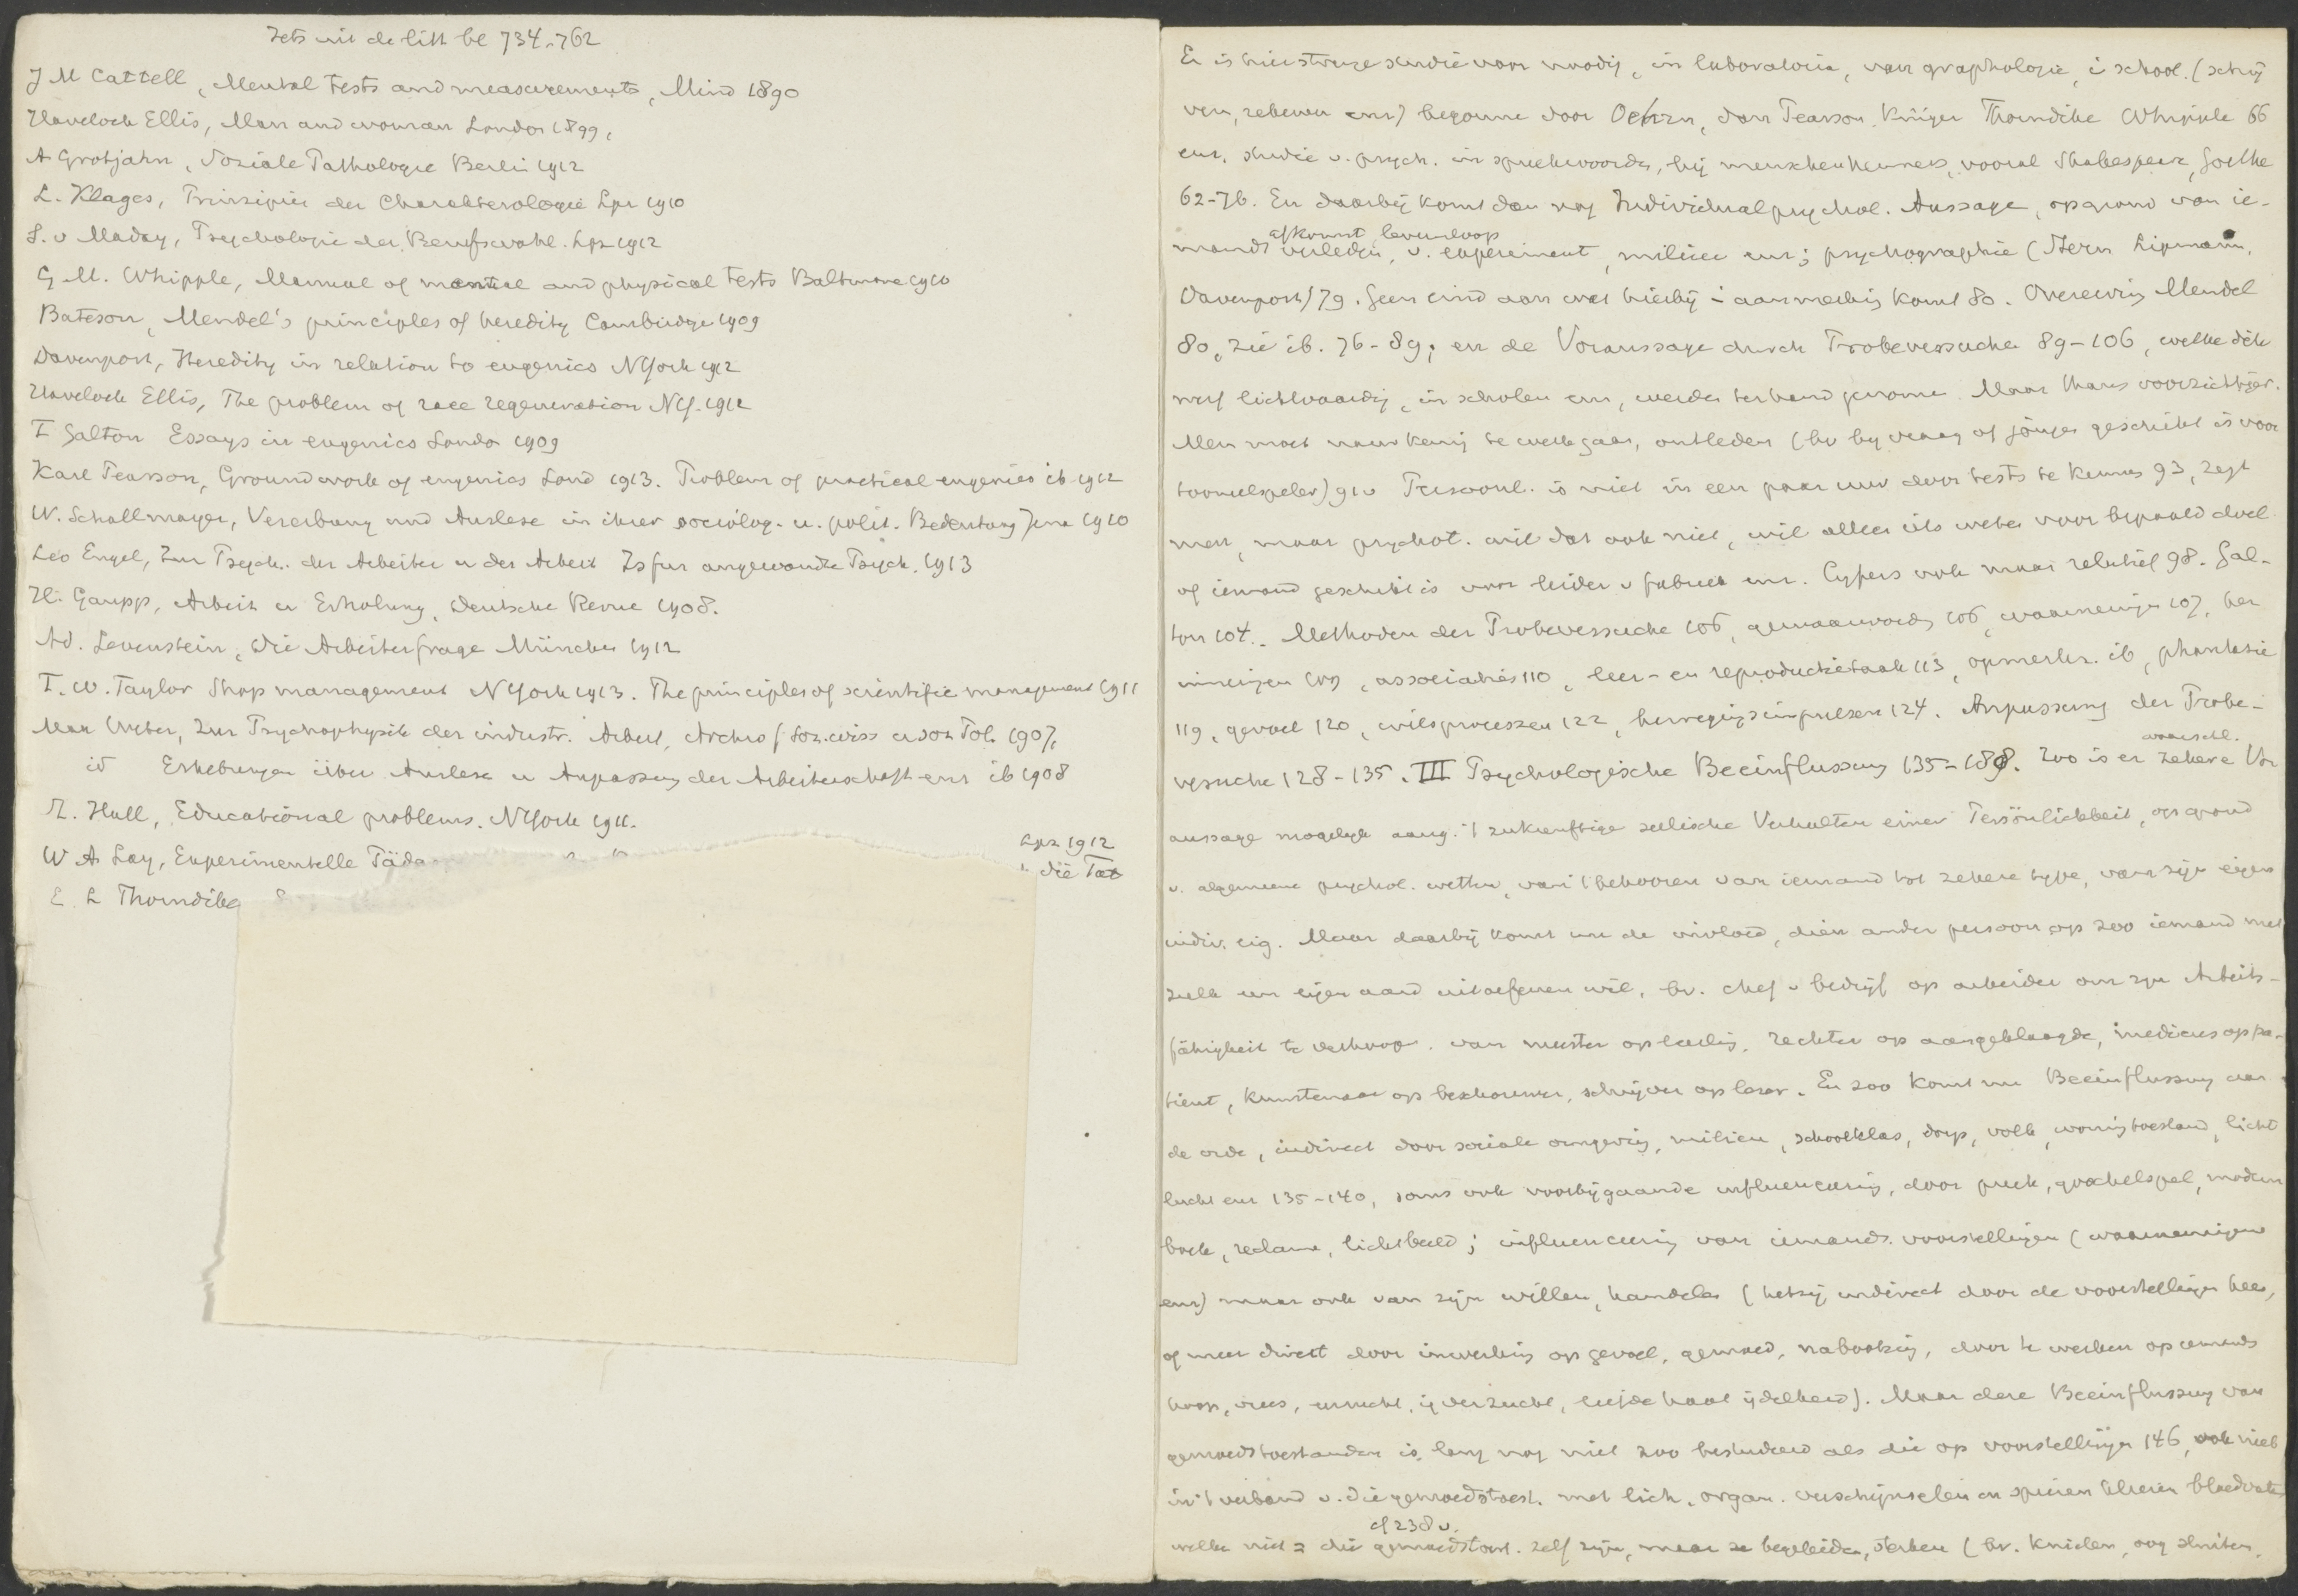 Iets uit de litt bl 734-762
J M Cattell, Mental tests and measurements, Mind 1890
Havelock Ellis, Man and woman London 1899,
A Grotjahn, Soziale Pathologie Berlin 1912
L. Klages, Prinzipien der Charakterologie Lpz 1910
S. v Maday, Psychologie der Berufswahl. Lpz 1912
G M. Whipple, Manual of mental and physical tests Baltimore 1910
Bateson, Mendel's principles of heredity Cambridge 1909
Davenport, Heredity in relation to eugenics NYork 1912
Havelock Ellis, The problem of race regeneration NY. 1911
F Galton Essays in eugenics London 1909
Karl Pearson, Groundwork of eugenics Lond 1913. Problem of practical eugenics ib 1912
W. Schallmayer, Vererbung und Auslese in ihrer sociolog. u. polit. Bedeutung Jena 1910
Leo Engel, Zur Psych. der Arbeiter u der Arbeit Zs fur angewandte Psych. 1913
H. Gaupp, Arbeit u Erholung, Deutsche Revue 1908.
Ad. Levenstein, Die Arbeiterfrage München 1912
F. W. Taylor Shop management NYork 1913. The principles of scientific management 1911
Max Weber, Zur Psychophysik der industr. Arbeit, Archiv f Soz. wiss u soz Pol. 1907,
id Erhebungen über Auslese u Anpassung der Arbeiterschaft enz ib 1908
S. Hall, Educational problems. NYork 1911.
W A Lay, Experimentelle Päda
Lpz 1912
die Tat
E. L Thorndike
Er is hier strenge studie voor noodig, in laboratoria, van graphologie, i school. (schrij
ven, rekenen enz) begonnen door Oehrn, dan Pearson, Krüger Thorndike Whipple 66
enz, studie v. psych. in spreekwoorden, bij menschenkenners, vooral Shakespeare, Goethe
62-76. En daarbij komt dan nog Individualpsychol. Aussage, op grond van ie-
afkomst levensloop
mands verleden, v. experiment, milieu enz; psychographie (Stern Lipmann,
Davenport) 79. Geen eind aan wat hierbij i aanmerking komt 80. Overerving Mendel
80, zie ib. 76-89; en de Voraussage durch Probeversuche 89-106, welke dikw
werf lichtvaardig, in scholen enz, werden ter hand genomen. Maar thans voorzichtiger.
Men moet nauwkeurig te werk gaan, ontleden (bv bij vraag of jongen geschikt is voor
tooneelspeler) 91 v Persoonl. is niet in een paar uur door tests te kennen 93, zegt
men, maar psychot. wil dat ook niet, wil alleen iets weten voor bepaald doel
of iemand geschikt is voor leider v fabriek enz. Cijfers ook maar relatief 98. Gal-
ton 104. Methoden der Probeversuche 106, gewaarwording 106, waarneming 107, her
inneringen 109, associaties 110, leer- en reproductietaak 113, opmerkz. ib, phantasie
119, gevoel 120, wilsprocessen 122, bewegingsimpulsen 124. Anpassung der Probe-
waarschl.
versuche 128-135. III Psychologische Beeinflussung 135-188. Zoo is er zekere Vor
aussage mogelijk aang. 't zukunftige seelische Verhalten einer Persönlichkeit, op grond
v. algemeene psychol. wetten, van 't behooren van iemand tot zekere type, van zijn eigen
indiv. eig. Maar daarbij komt nu de invloed, dien ander persoon op zoo iemand met
zulk een eigen aard uitoefenen wil, bv. chef v bedrijf op arbeider om zijn Arbeits-
fähigkeit te verhoogen. van meester op leerling, rechter op aangeklaagde, medicus op pa-
tient, kunstenaar op beschouwer, schrijver op lezer. En zoo komt nu Beeinflussung aan
de orde, indirect door sociale omgeving, milieu, schoolklas, dorp, volk, woningtoestand, licht
lucht enz 135-140, soms ook voorbijgaande influenceering, door preek, goochelspel, modern
boek, reclame, lichtbeeld; influenceering van iemands voorstellingen (waarnemingen
enz) maar ook van zijn willen, handelen (hetzij indirect door de voorstellingen heen,
of meer direct door inwerking op gevoel, gemoed, nabootsing, door te werken op iemands
hoop, vrees, eerzucht, ijverzucht, liefde haat ijdelheid). Maar deze Beeinflussung van
gemoedstoestanden is lang nog niet zoo bestudeerd als die op voorstellingen 146, ook niet
in 't verband v. die gemoedstoest. met lich. organ. verschijnselen en spieren klieren bloedvaten
cf 238 v.
welke niet = die gemoedstoest. zelf zijn, maar ze begeleiden, sterken (bv. knielen, oog sluiten,